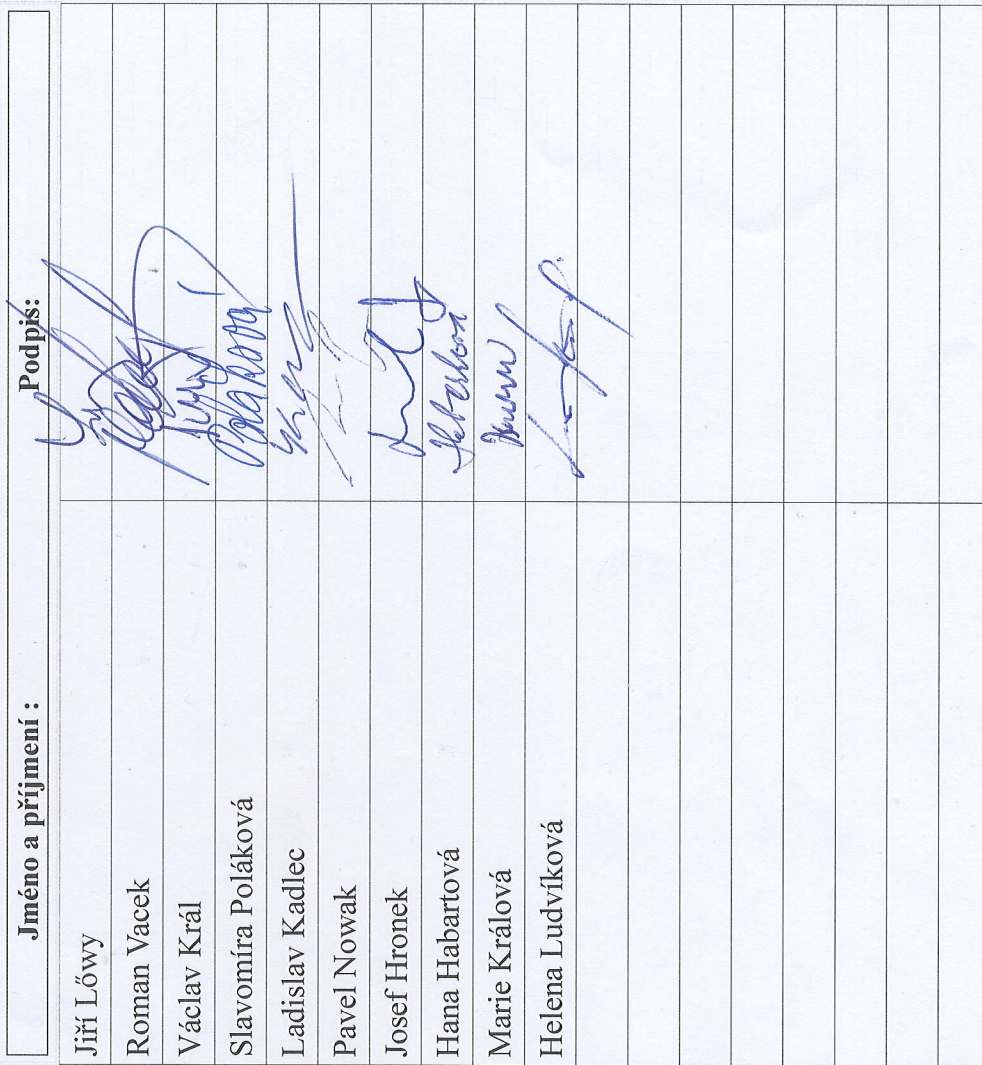 Jméno a příjmení : Podpis:
Jiří Lőwy
Roman Vacek
Václav Král
Slavomíra Poláková Poláková
Ladislav Kadlec
Pavel Nowak
Josef Hronek
Hana Habartová Habartová
Marie Králová
Helena Ludvíková